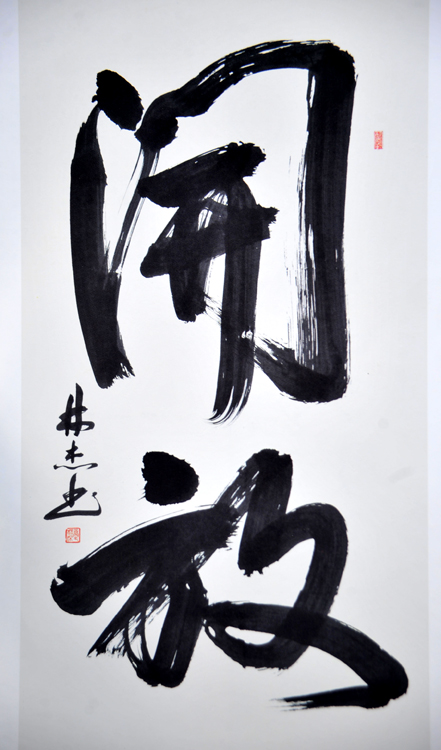 開放
林杰书